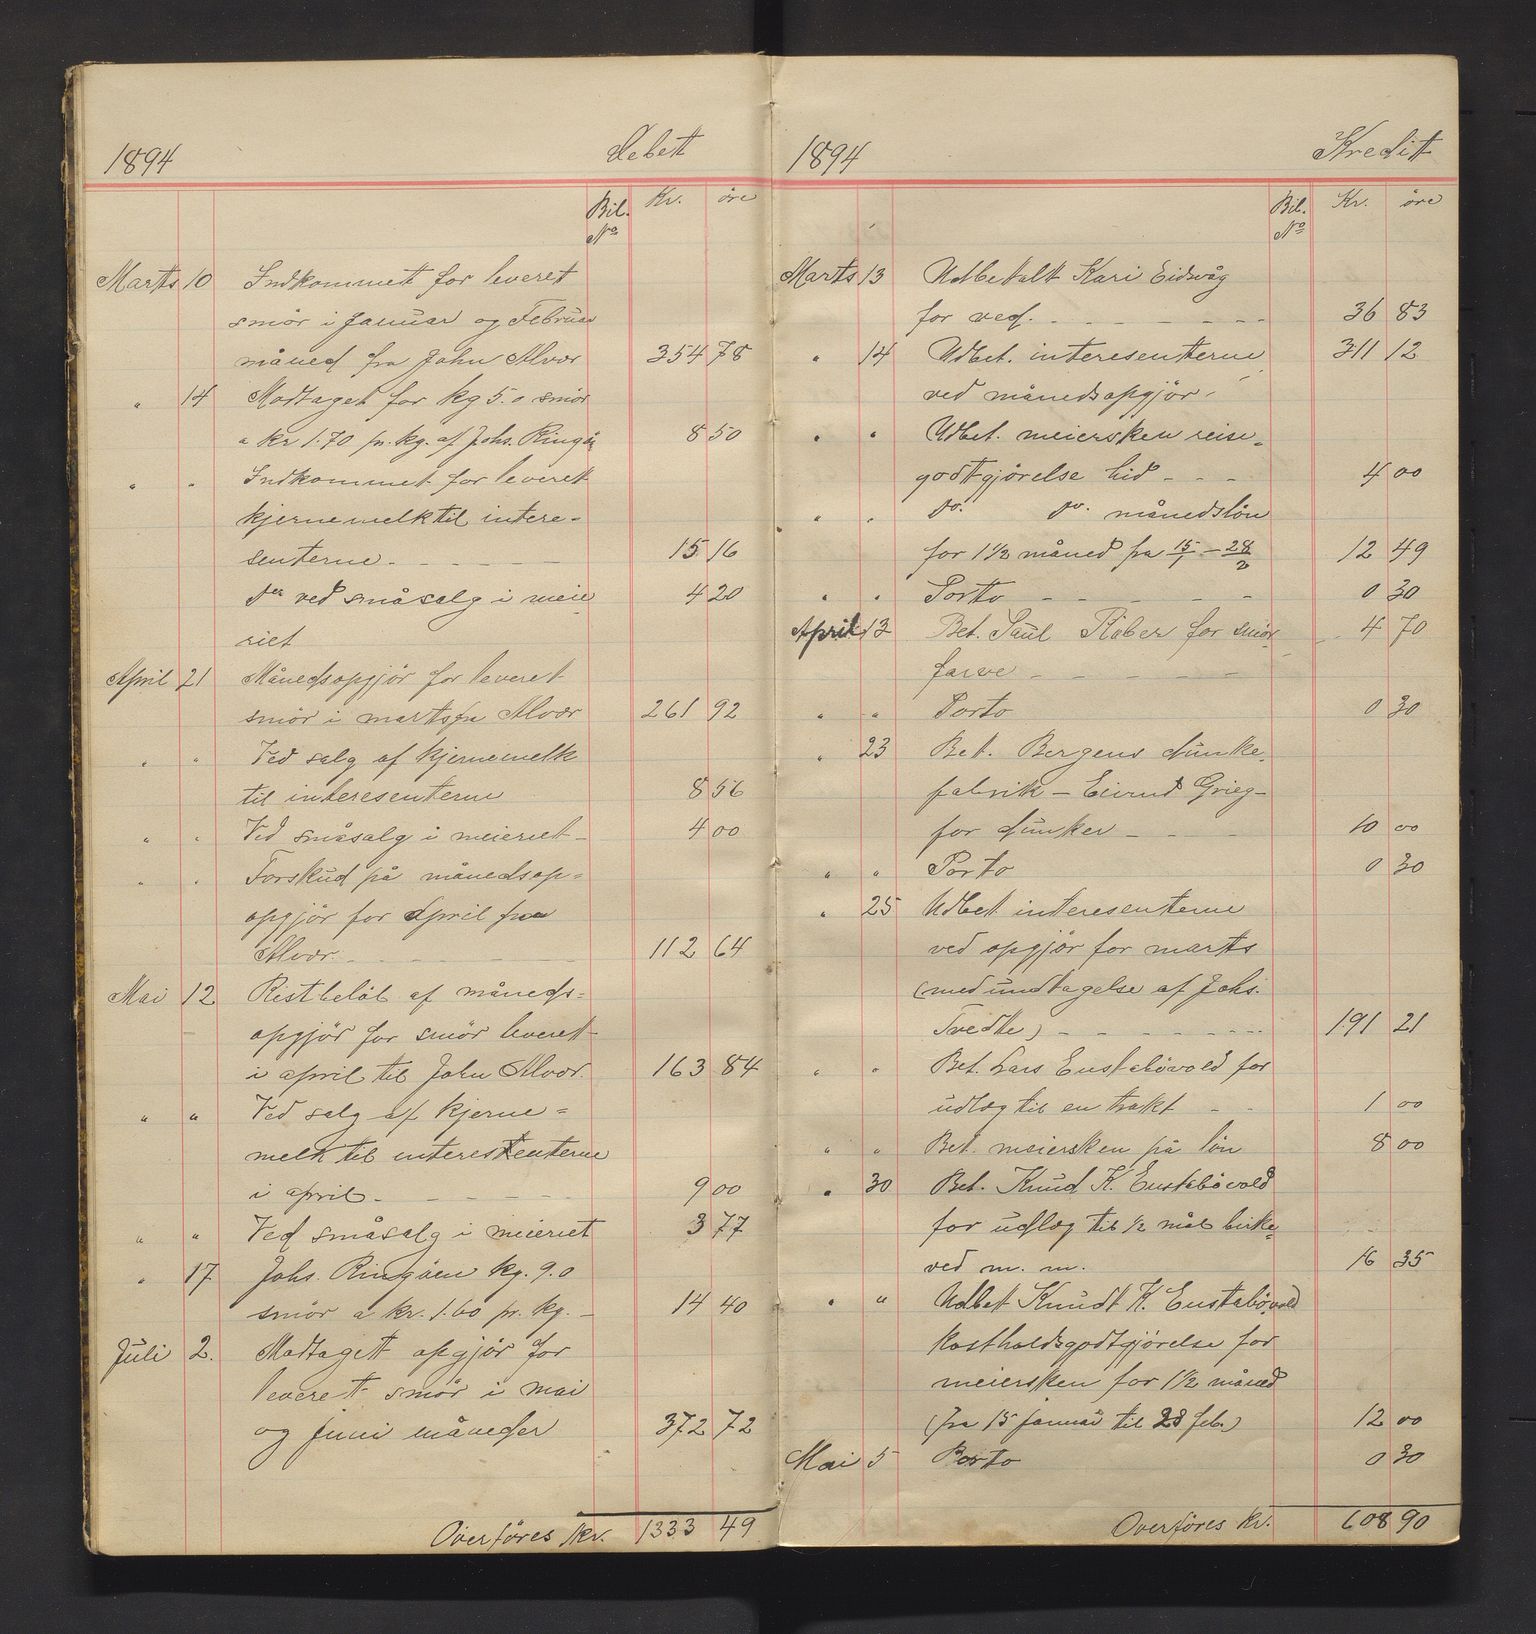 1894 Debett
Bil. No Kr. öre
Marts 10 Indkommet for leveret
smör i Januar og Februar
måned fra John Alvær 354 78
" 14 Modtaget for kg 5.0 smör
a kr 1.70 pr. kg. af Johs. Ringö 8 50
" " Indkommet for leveret
kjernemelk til intere=
senterne 15 16
do ved småsalg i meie 4 20
riet
April 21 Månedsopgjör for leveret
smör i marts fra Alvær 261 92
" " Ved salg af kjernemelk
til interesenterne 8 56
" " Ved småsalg i meieriet 4 00
" " Forskud på månedsop=
opgjör for April fra
Alvær 112 64
Mai 12 Ristbelöb af måneds=
opgjör for smör leveret
i april til John Alvær. 163 84
" " Ved salg af kjerne=
melk til interestenterne
i april 9 00
" " Ved småsalg i meieriet 3 77
" 17 Johs. Ringöen kg. 9.0
smör a kr. 1.60 pr. kg. 14 40
Juli 2. Modtaget opgjör for
leveret smör i mai
og juni måneder 372 72
Overföres kr. 1333 49
1894 Kredit
Bil. No Kr. öre
Marts 13 Udbetalt Kari Eidsvåg
for ved. 36 83
" 14 Udbet. interesenterne 311 12
ved månedsopgjör
" " Udbet. meiersken reise=
godtgjörelse hid 4 00
" " do. do. månedslön
for 1 1/2 måned fra 15/1 - 28/2 12 49
" " Porto 0 30
April 13 Bet. Paul Röber for smör 4 70
farve
" " Porto 0 30
" 23 Bet. Bergens dunke=
fabrik - Eivind Grieg -
for dunker 10 00
" " Porto 0 30
" 25 Udbet interesenterne
ved opgjör for marts
(med undtagelse af Johs.
Tredte) 191 21
" " Bet. Lars Eustabövold for
udlæg til en trakt 1 00
" " Bet. meiersken på lön 8 00
" 30 Bet. Knud K. Eustabövold
for udlæg til 1/2 mål birke=
ved m. m. 16 35
" " Udbet Knudt K. Eustabövold
kostholdsgodtgjörelse for
meiersken for 1 1/2 måned
(fra 15 januar til 28 feb.) 12 00
Mai 5 Porto 0 30
Overföres kr. 608 90